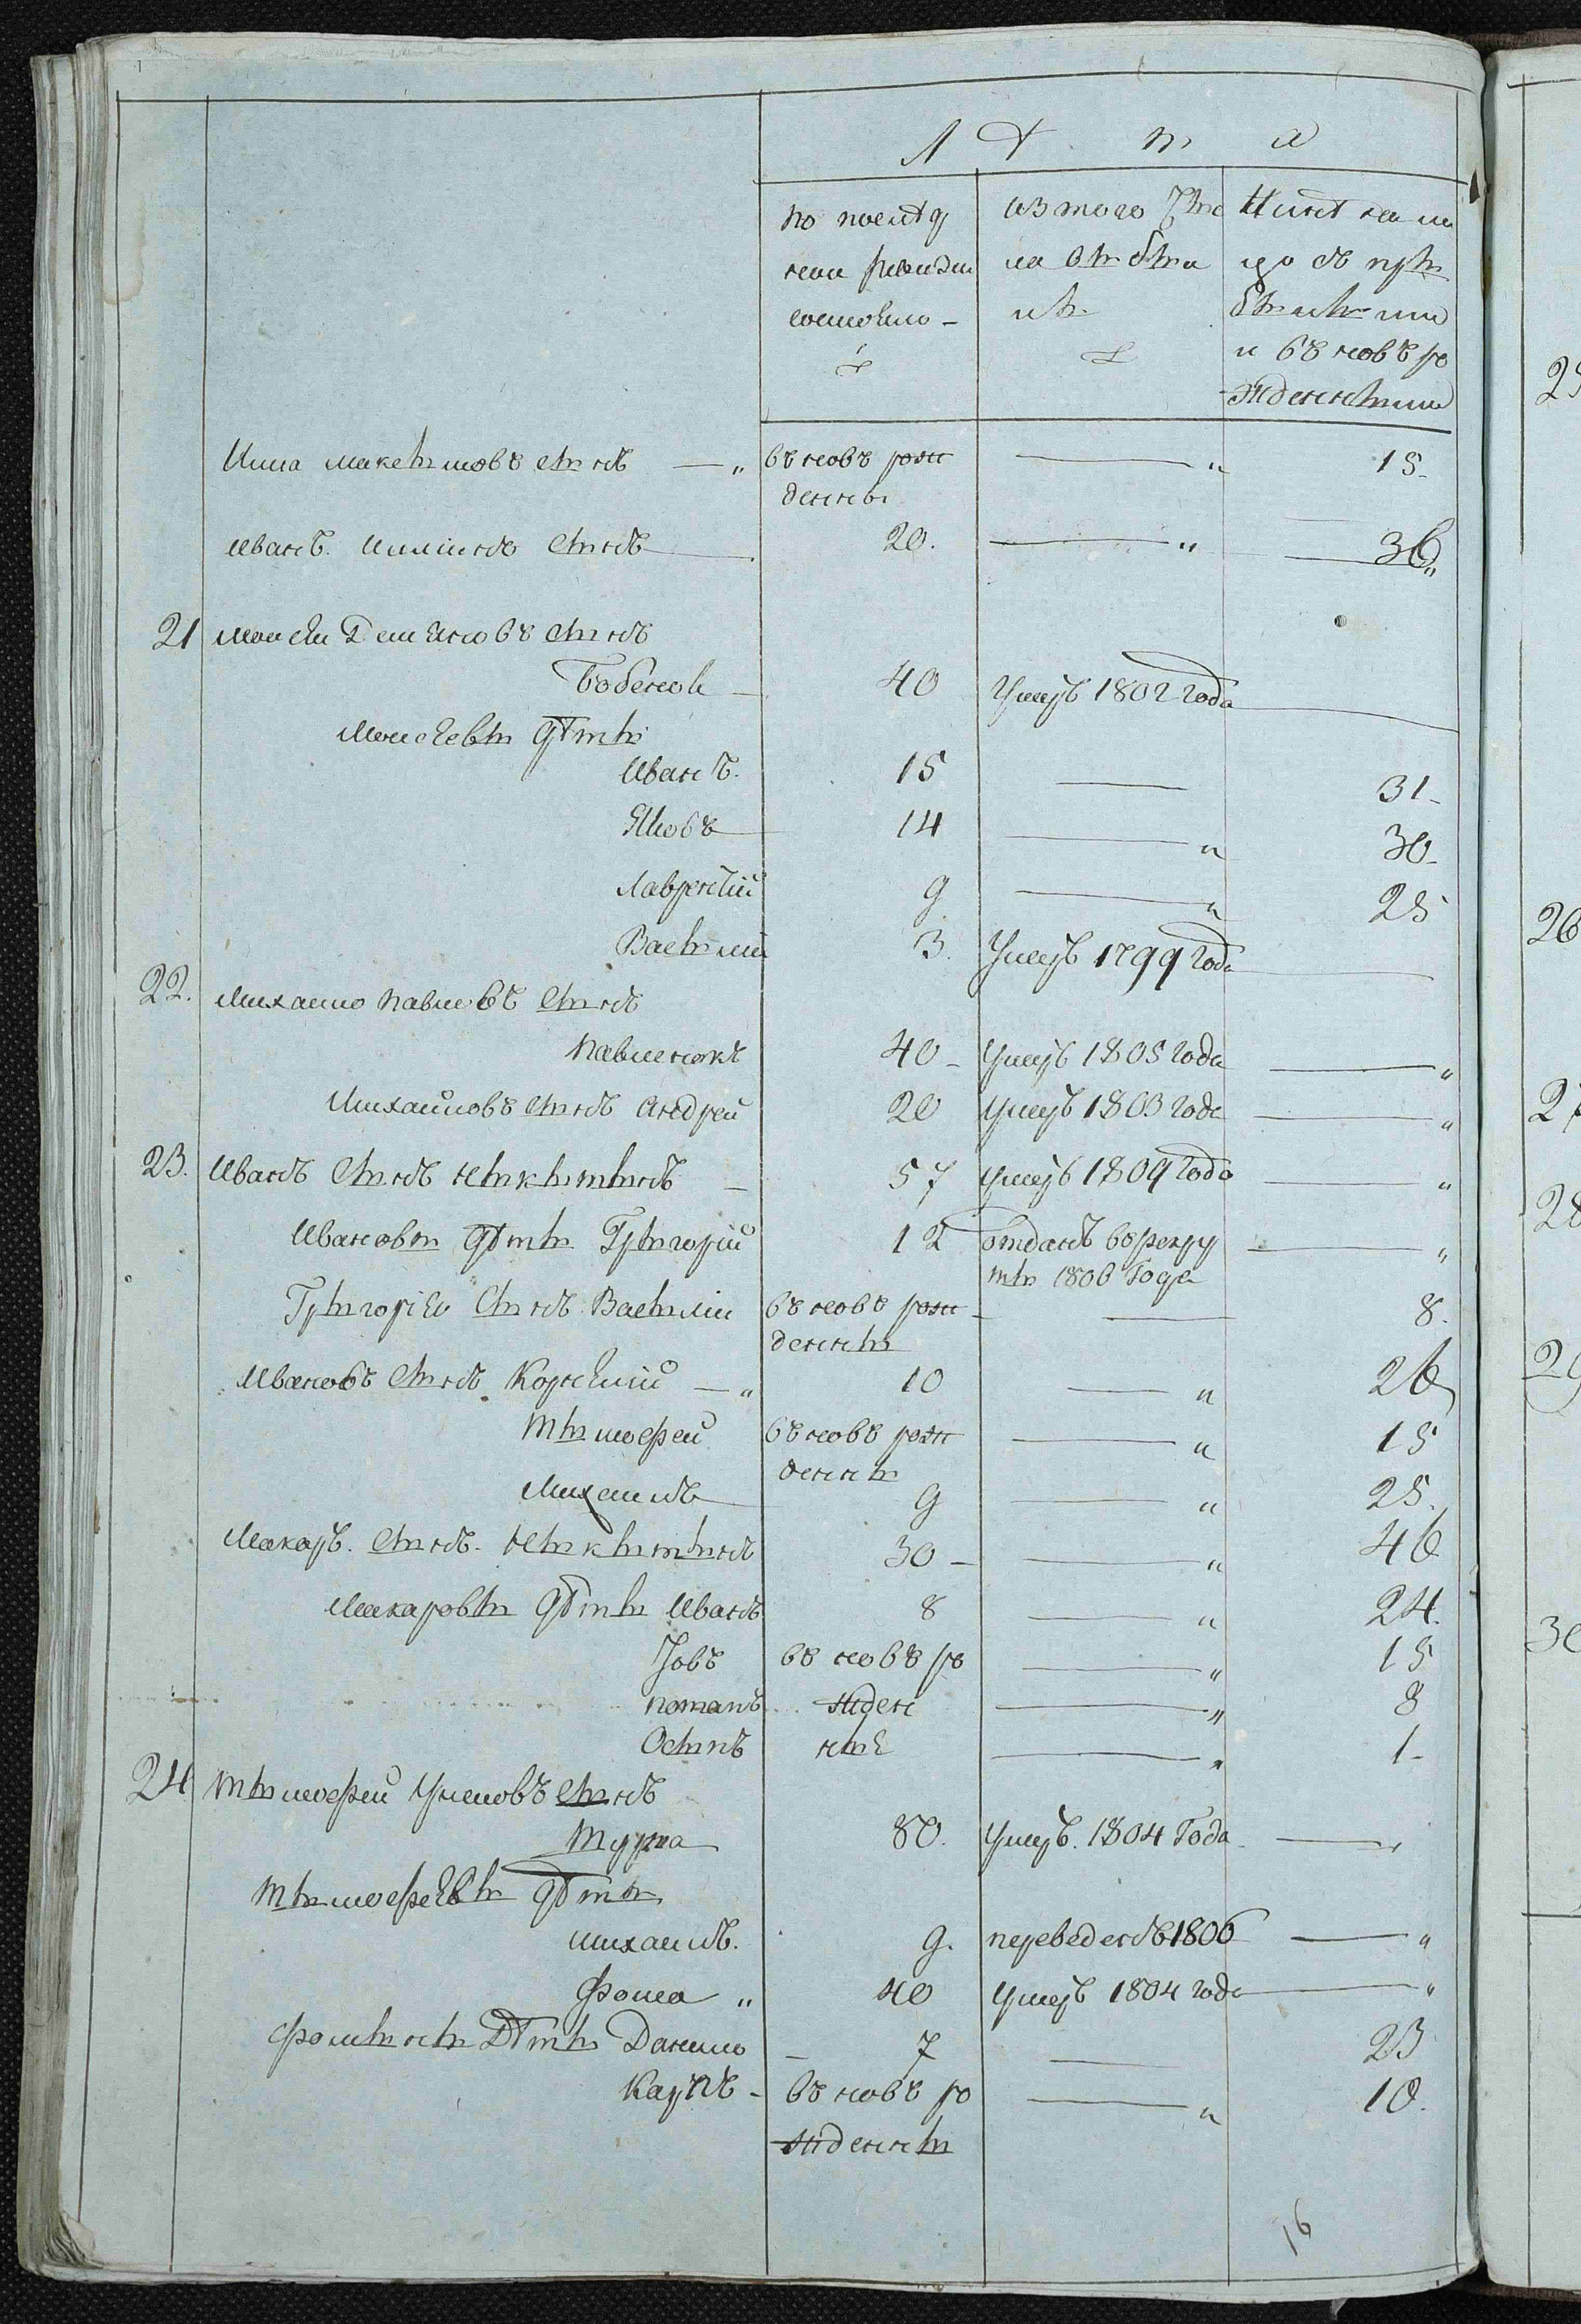 Лѣта
по послѣд
ней ревизіи
состояло -
изъ того чи
сла выбы
ли
Нынѣ на ли
цо съ при
былыми
и въ новь ро
жденными
Илла Максимовъ сынъ — " въ новь рож — " 15-
денны
Иванъ. Иллинъ сынъ — 20. — " 36"
21 Моисеи Демяновъ сынъ
40 умеръ 1802 года —
Моисеевы дѣти
Иванъ. 15 — 31-
Яковъ 14 — " 30-
Лаврентій 9 — " 25
Василий 3. умеръ 1799 года —
22. Михаило Павловъ сынъ
Павленокъ 40- умеръ 1805 года — "
Михайловъ сынъ Андреи 20 умеръ 1803 года — "
23. Иванъ сынъ Никитинъ - 57 умеръ 1809 года — "
Ивановы дѣти Григорій 12 отданъ во рекру — "
ты 1806 года
Григоріев сынъ Василіи въ новь рож - — 8.
денны
Ивановъ сынъ Корнѣлій — " 10 — " 26
Тимофей въ новь рож — " 15
денны
Михаилъ 9 — " 25.
Макаръ. сынъ. Никитинъ 30- — " 46
Макаровы дѣти Иванъ 8 — " 24.
Іовъ въ новь ро — " 15
Потапъ жден — " 8
Осипъ ные — " 1-
24 Тимофеи сынъ
80. умеръ. 1804 года —
Тимофеевы дѣти
Михаилъ. 9. переведенъ 1806 — "
Фома " 40 умеръ 1804 года — "
Фомины Дѣти Данило - 7 — 23
Карпъ - въ новь ро — " 10.
жденны
16
25
26
27
28
29
30